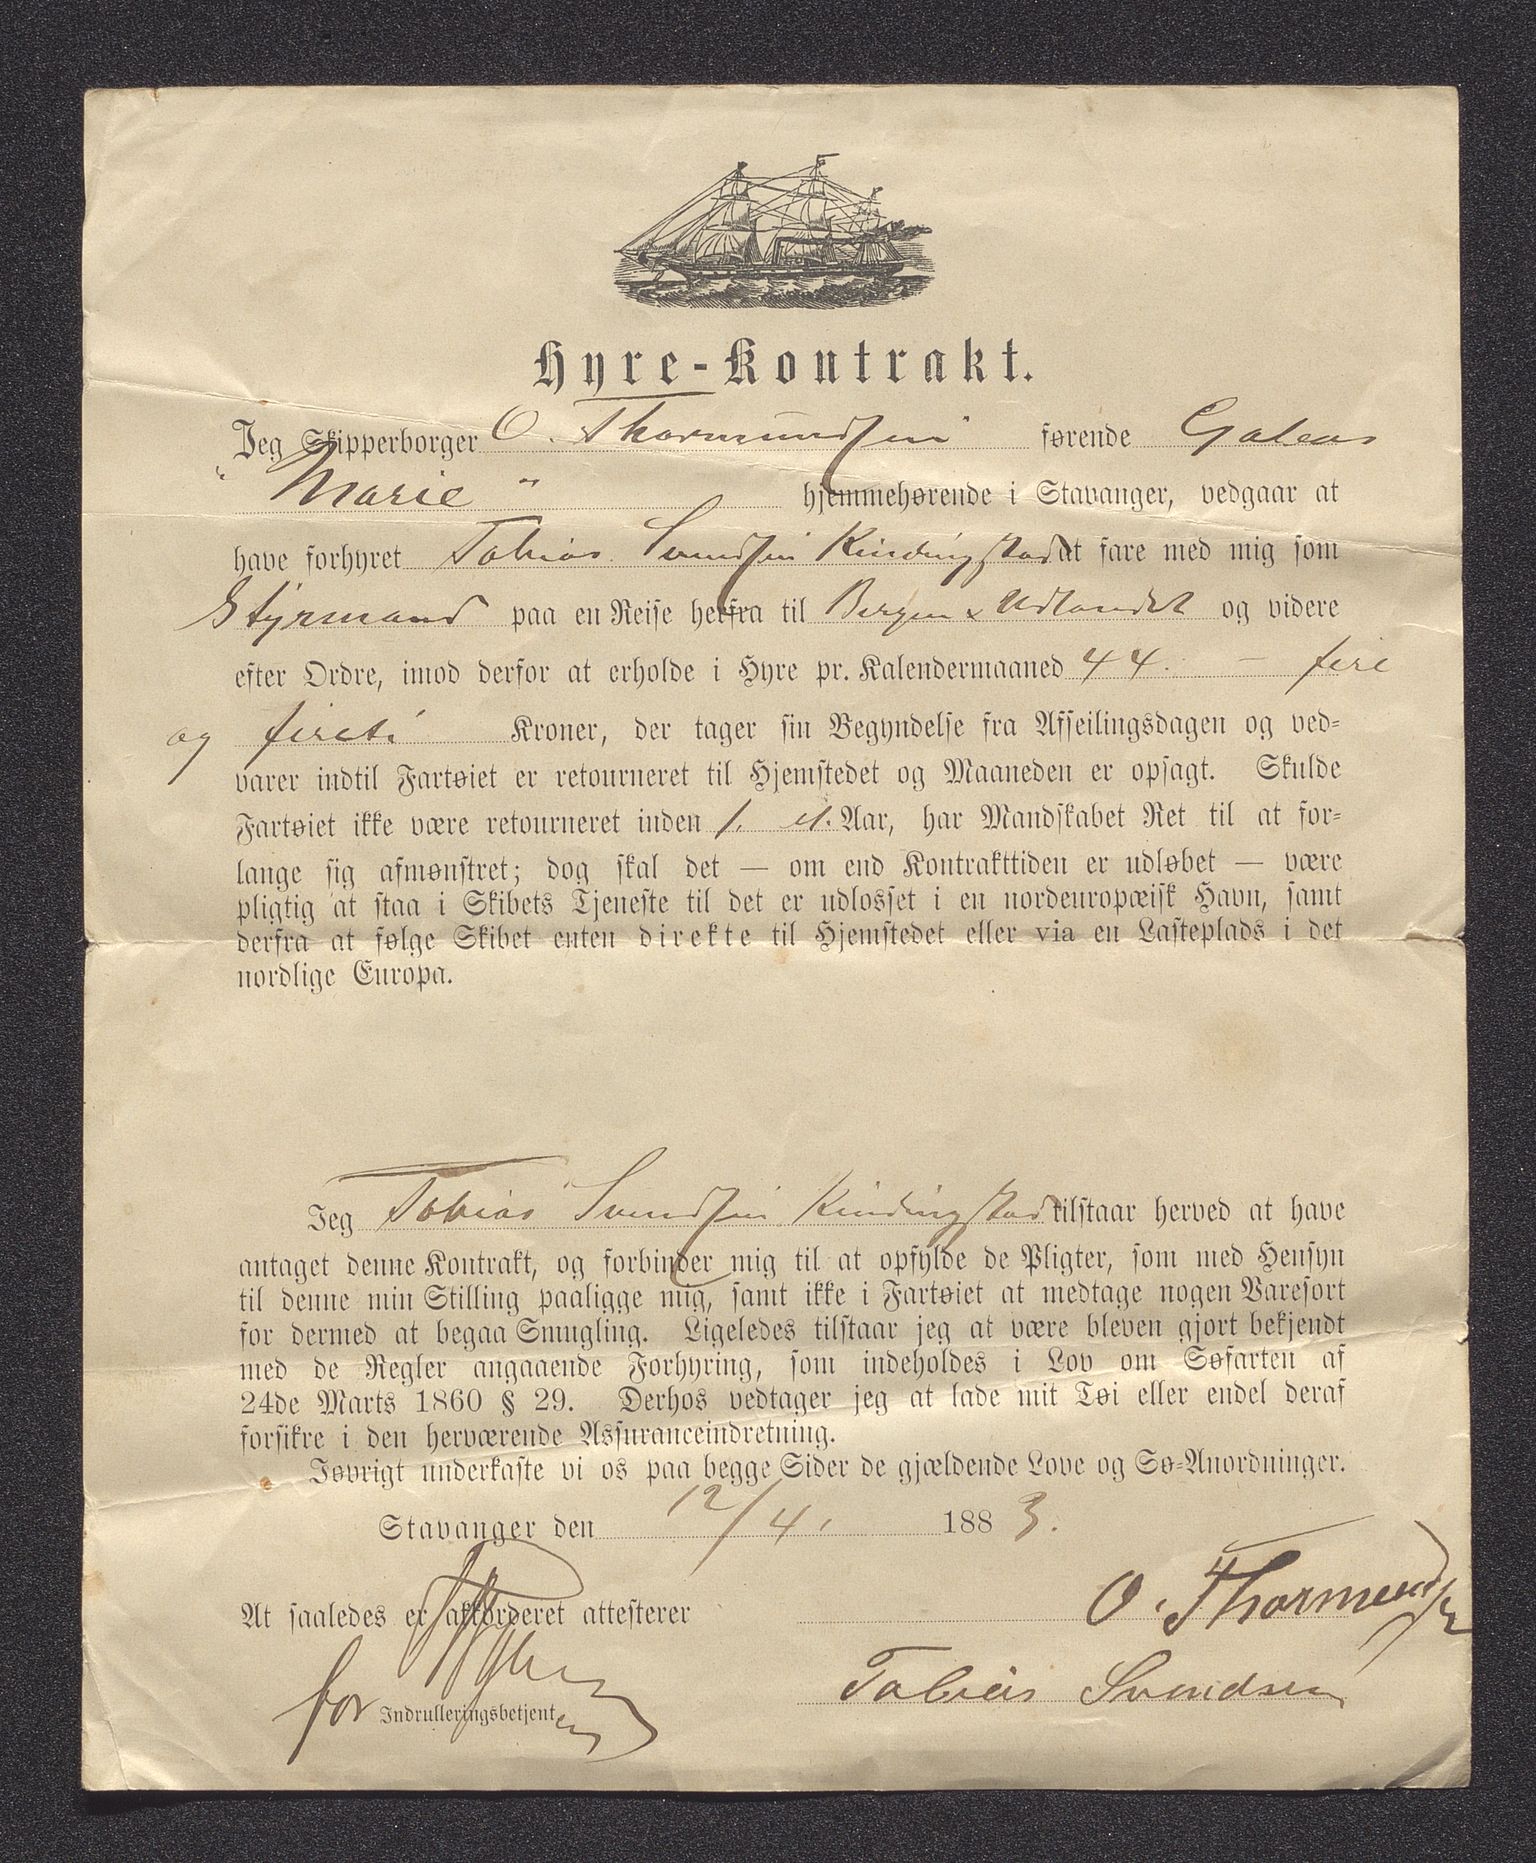 Hyre-Kontrakt.
Jeg Skipperborger O. Thormundsen førende Galeas
"Marie" hjemmehørende i Stavanger, vedgaar at
have forhyret Tobias Svendsen Kindingstad at fare med mig som
Styrmand paa en Reise herfra til Bergen & Udlandet og videre
efter Ordre, imod derfor at erholde i Hyre pr. Kalendermaaned 44. – fire
og fireti Kroner, der tager sin Begyndelse fra Afseilingsdagen og ved-
varer indtil Fartøiet er retourneret til Hjemstedet og Maaneden er opsagt. Skulde
Fartøiet ikke være retourneret inden 1. et. Aar, har Mandskabet Ret til at for-
lange sig afmønstret; dog skal det — om end Kontrakttiden er udløbet — være
pligtig at staa i Skibets Tjeneste til det er udlosset i en nordeuropæisk Havn, samt
derfra at følge Skibet enten direkte til Hjemstedet eller via en Lasteplads i det
nordlige Europa.
Jeg Tobias Svendsen Kindingstad tilstaar herved at have
antaget denne Kontrakt, og forbinder mig til at opfylde de Pligter, som med Hensyn
til denne min Stilling paaligge mig, samt ikke i Fartøiet at medtage nogen Varesort
for dermed at begaa Smugling. Ligeledes tilstaar jeg at være bleven gjort bekjendt
med de Regler angaaende Forhyring, som indeholdes i Lov om Søfarten af
24de Marts 1860 § 29. Derhos vedtager jeg at lade mit Tøi eller endel deraf
forsikre i den herværende Assuranceindretning.
Iøvrigt underkaste vi os paa begge Sider de gjældende Love og Sø-Anordninger.
Stavanger den 12/4. 1883.
At saaledes er akkorderet attesterer O. Thormundsen
for Indrulleringsbetjenten Tobias Svendsen